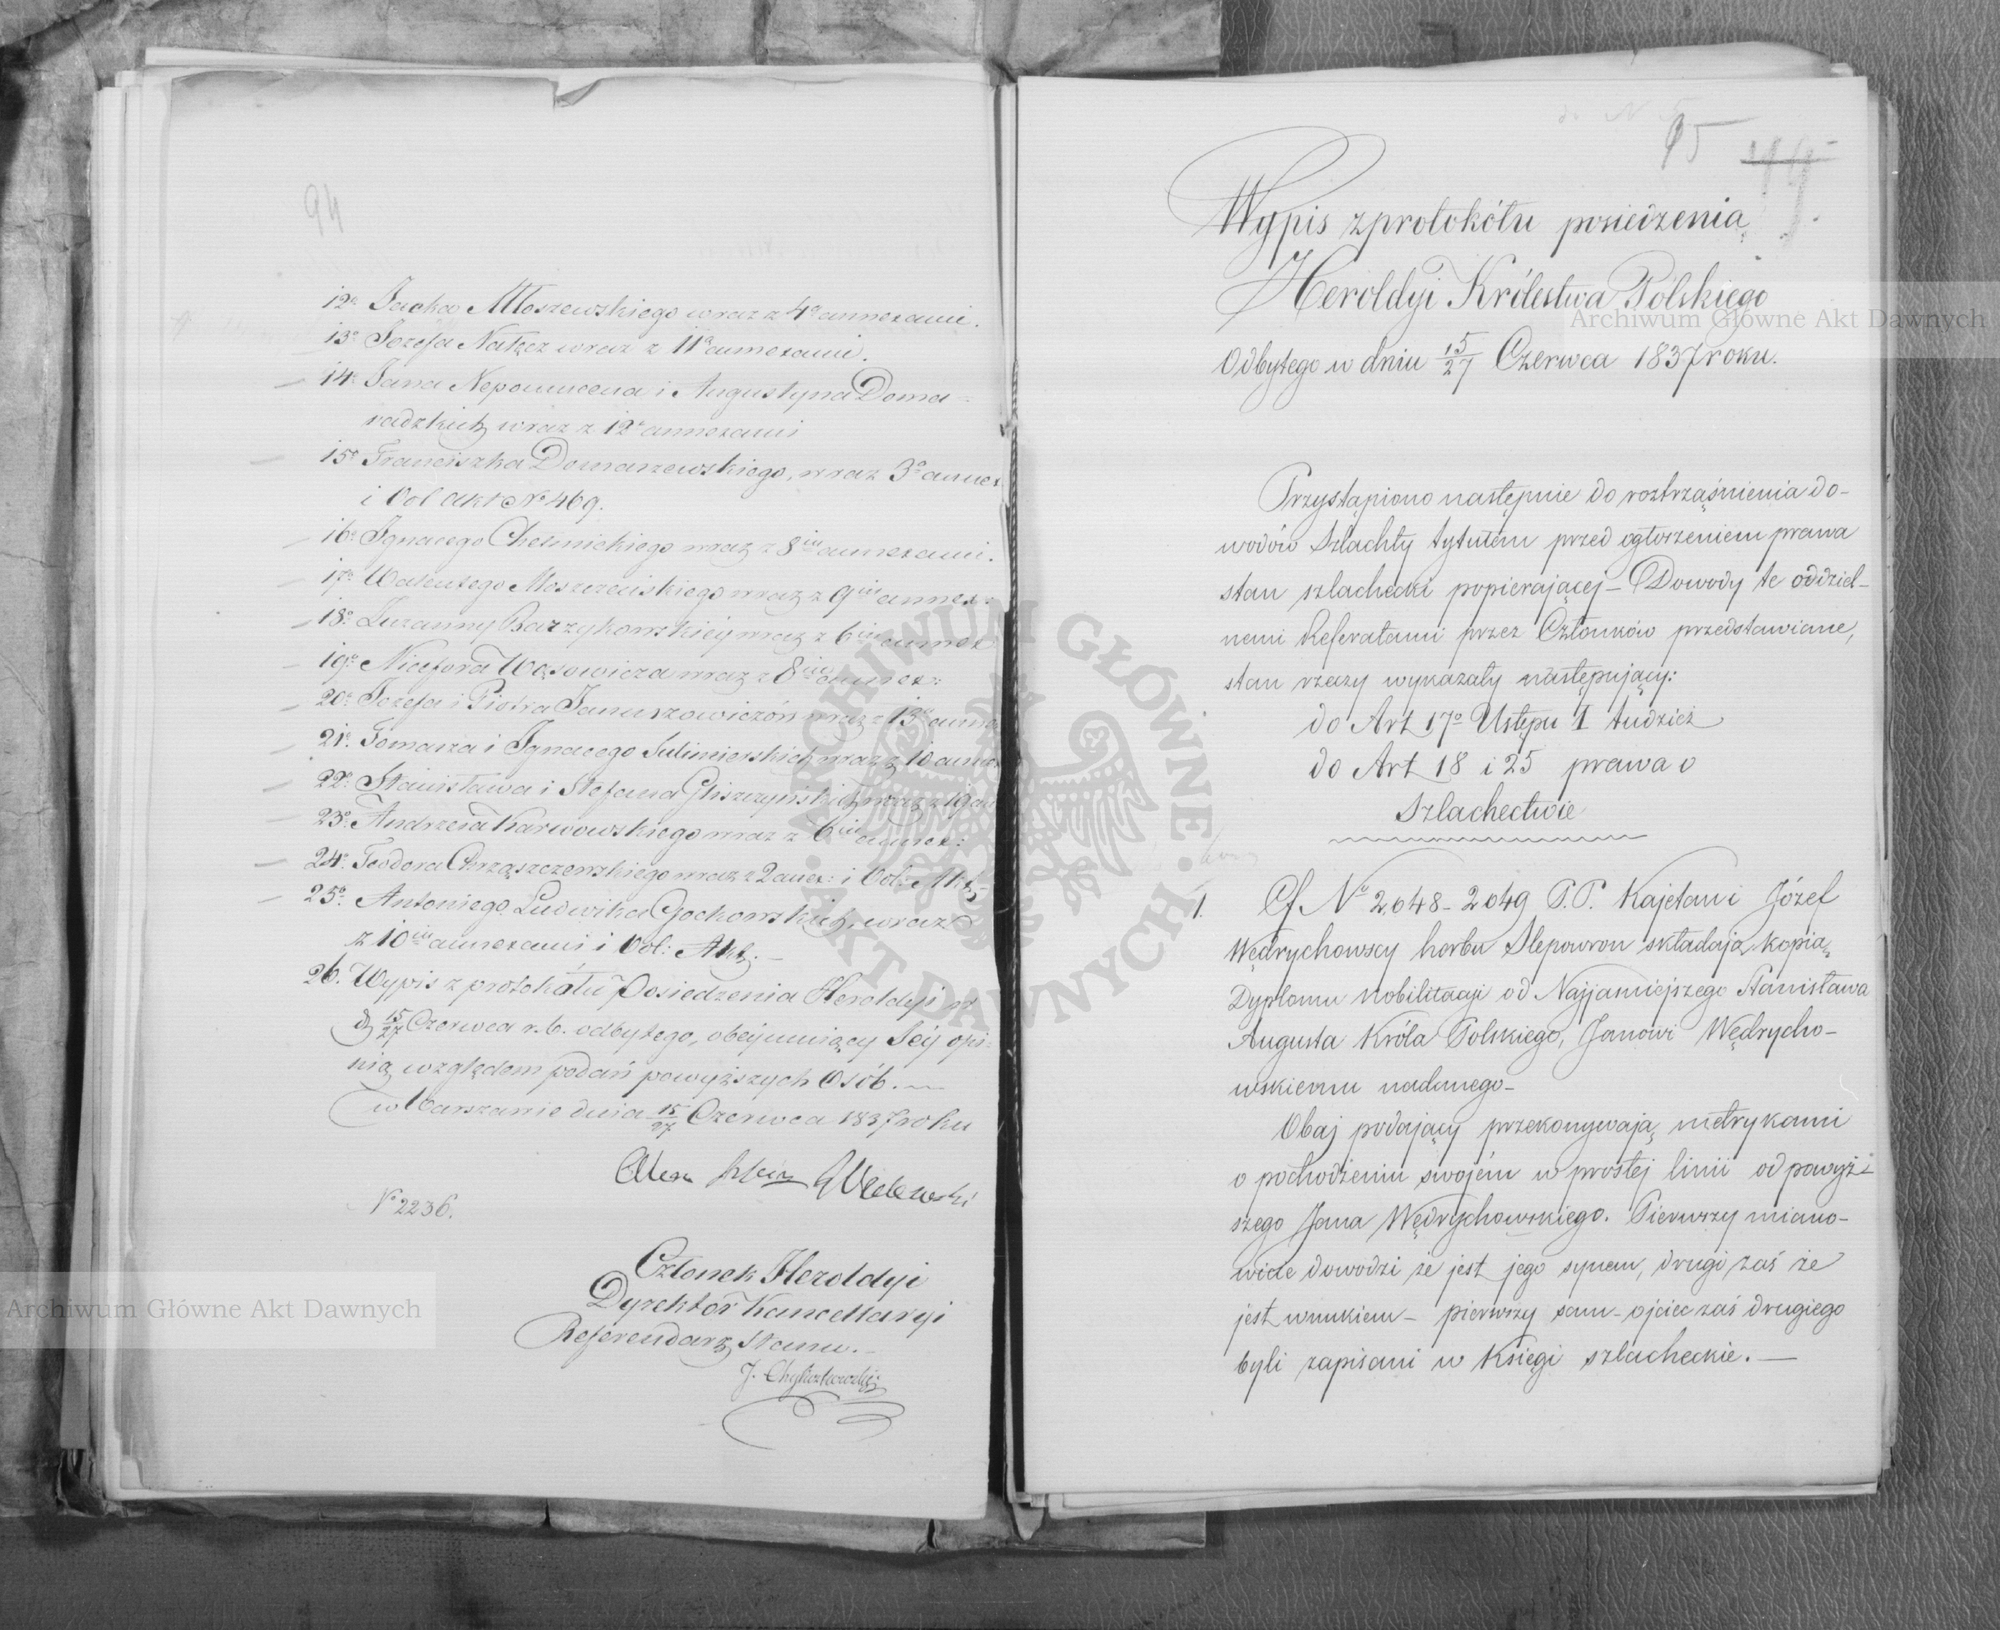 94
12º Jacka Młoszewskiego wraz z 4º annexami.
13º Józefa Nałęcz wraz z 11º annexami.
14º Jana Nepomucena i Augustyna Doma-
radzkich wraz z 12º annexami
15º Franciszka Domaszewskiego, wraz 3º annex
i Vol akt Nº 469.
16º Ignacego Chełmickiego wraz z 8iu annexami.
17º Walentego Moszczeńskiego wraz z 9iu annex:
18º Zuzanny Barzykowskiej wraz z 6iu annex
19º Nicefora Wąsowicza wraz z 8iu annex:
20º Józefa i Piotra Januszowiczów wraz z 13 anne
21º Tomasza i Ignacego Sulimierskich wraz z 10 anne
22º Stanisława i Stefana Gliszczyńskich wraz z 19 an
23º Andrzeja Karwowskiego wraz z 6iu annex:
24º Teodora Chrząszczewskiego wraz z 2 anex: i Vol: Akt
25º Antoniego, Ludwika Gochowskich, wraz
z 10iu annexami i Vol: Akt. —
26. Wypis z protokółu Posiedzenia Heroldyi w
d 15/27 Czerwca r. b. odbytego, obejmujący Jéj opi-
nią względem podań powyższych Osób. —
w Warszawie dnia 15/27 Czerwca 1837 roku
Nº 2236.
Członek Heroldyi
Dyrektor Kancellaryi
Referendarz Stanu. —
95
Wypis z protokółu posiedzenia
Heroldyi Królestwa Polskiego
Odbytego w dniu 15/27 Czerwca 1837 roku.
Przystąpiono następnie do roztrząśnienia do-
wodów Szlachty tytułem przed ogłoszeniem prawa
stan szlachecki popierającej – Dowody te oddziel-
nemi Referatami przez Członków przedstawione,
stan rzeczy wykazały następujący:
do Art 17º Ustępu I tudzież
do Art 18 i 25 prawa o
Szlachectwie
1. Cf Nº 2648 – 2649 P.P. Kajetan i Józef
Wędrychowscy herbu Ślepowron składają kopią
Dyplomu nobilitacyi od Najjaśniejszego Stanisława
Augusta Króla Polskiego, Janowi Wędrycho-
wskiemu nadanego –
Obaj podający przekonywają metrykami
o pochodzeniu swojém w prostej linii od powyż-
szego Jana Wędrychowskiego. Pierwszy miano-
wicie dowodzi że jest jego synem, drugi zaś że
jest wnukiem – pierwszy sam – ojciec zaś drugiego
byli zapisani w Księgi szlacheckie. —
Archiwum Główne Akt Dawnych
Archiwum Główne Akt Dawnych
ARCHIWUM GŁÓWNE · AKT DAWNYCH ·